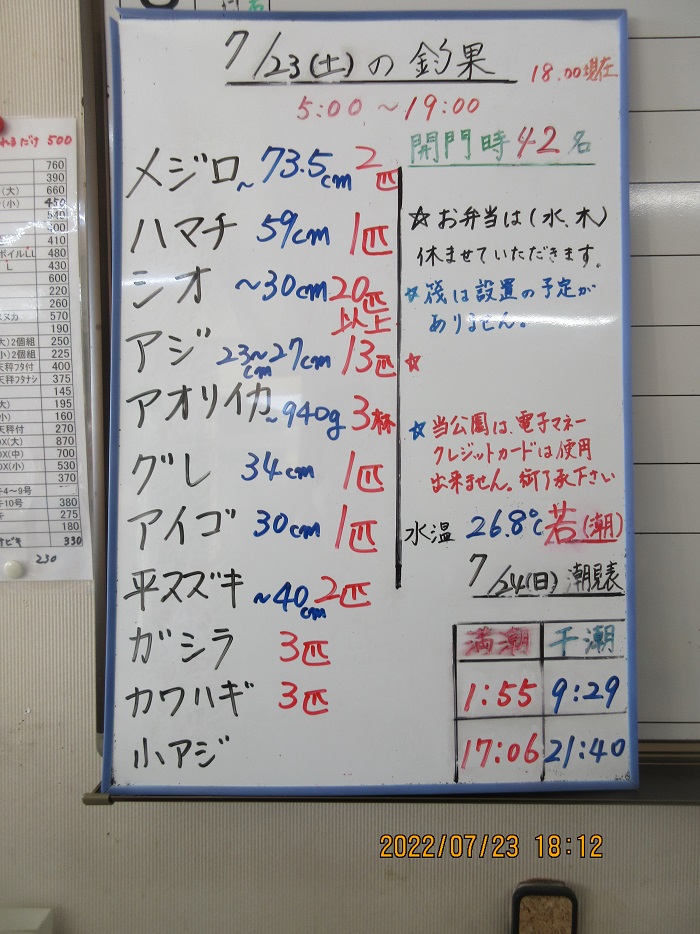 7/23(土)の釣果
18.00現在
5:00～19:00
開門時42名
メジロ ～73.5cm 2匹
ハマチ 59cm 1匹
シオ ～30cm 20匹以上
アジ 23cm～27cm 13匹
アオリイカ ～940g 3杯
グレ 34cm 1匹
アイゴ 30cm 1匹
平スズキ ～40cm 2匹
ガシラ 3匹
カワハギ 3匹
小アジ
☆お弁当は(水、木)
休ませていただきます。
☆筏は設置の予定が
ありません。
☆
☆当公園は、電子マネー
クレジットカードは使用
出来ません。御了承下さい
水温 26.8℃ 若(潮)
7/24(日)潮見表
満潮 干潮
1:55 9:29
17:06 21:40
500
760
390
(大) 660
(小) 450
540
400
410
ボイルLL 480
L 430
600
220
260
570
190
大)2個組 250
小)2個組 225
天秤フタ付 400
天秤フタナシ 375
145
大) 195
小) 160
天秤付 270
DX(大) 870
DX(中) 700
DX(小) 530
370
4～9号
10号 380
275
180
330
230
2022/07/23 18:12